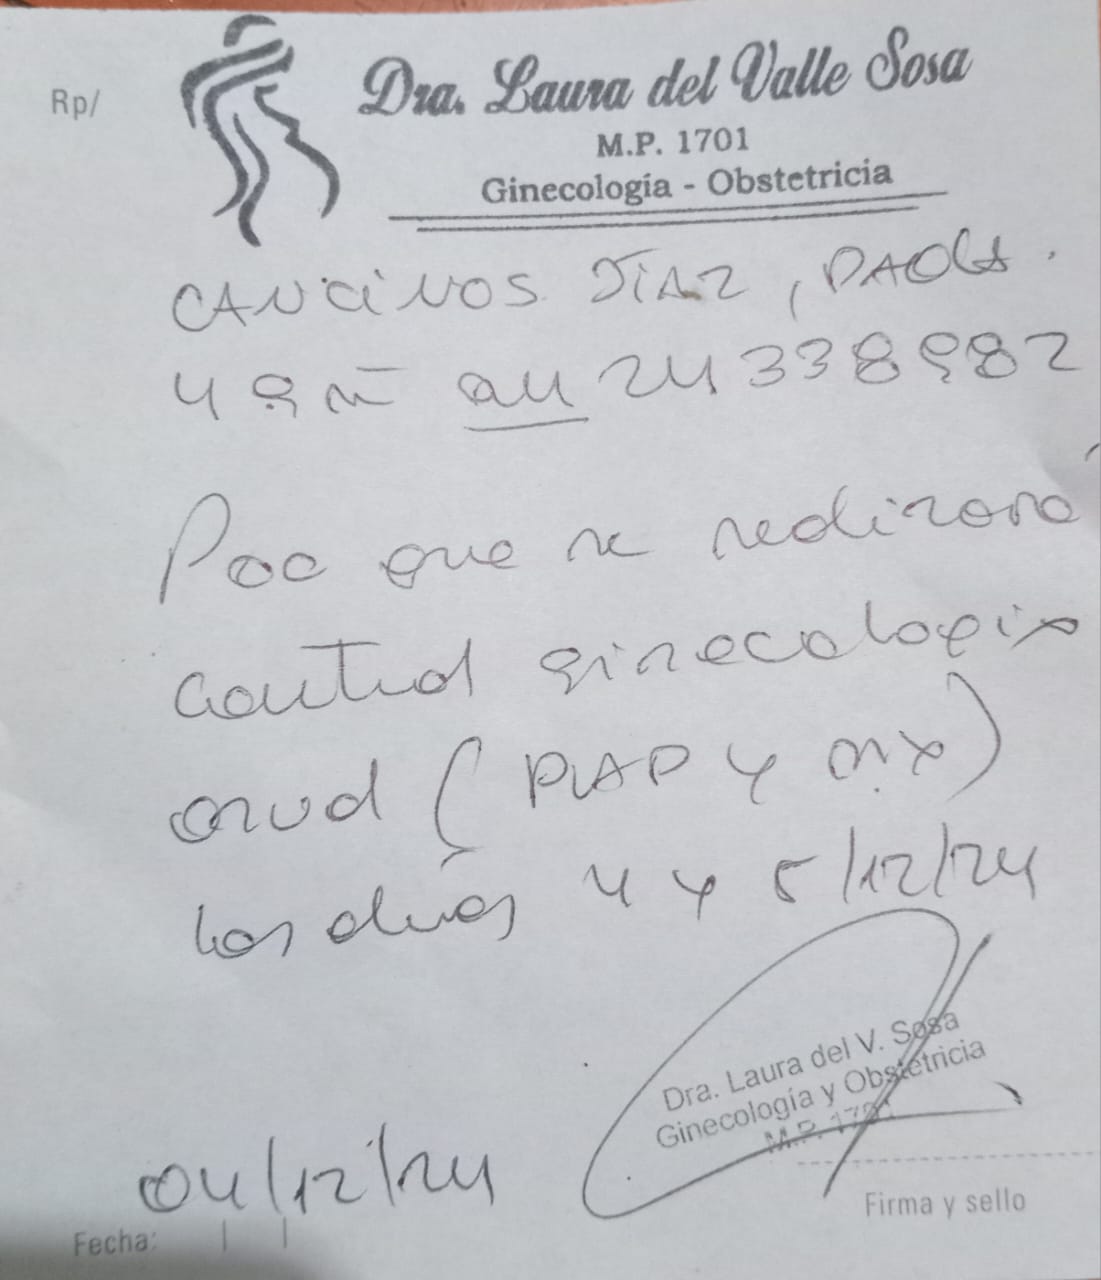 Rp/
Dra. Laura del Valle Sosa
M.P. 1701
Ginecología - Obstetricia
CANCINOS DIAZ, PAOLA.
24338982
que se realizara
control ginecologico
anual (PAP y mx)
los días 4 y 5/12/24
Dra. Laura del V. Sosa
Ginecología y Obstetricia
M.P. 1701
04/12/24
Firma y sello
Fecha: